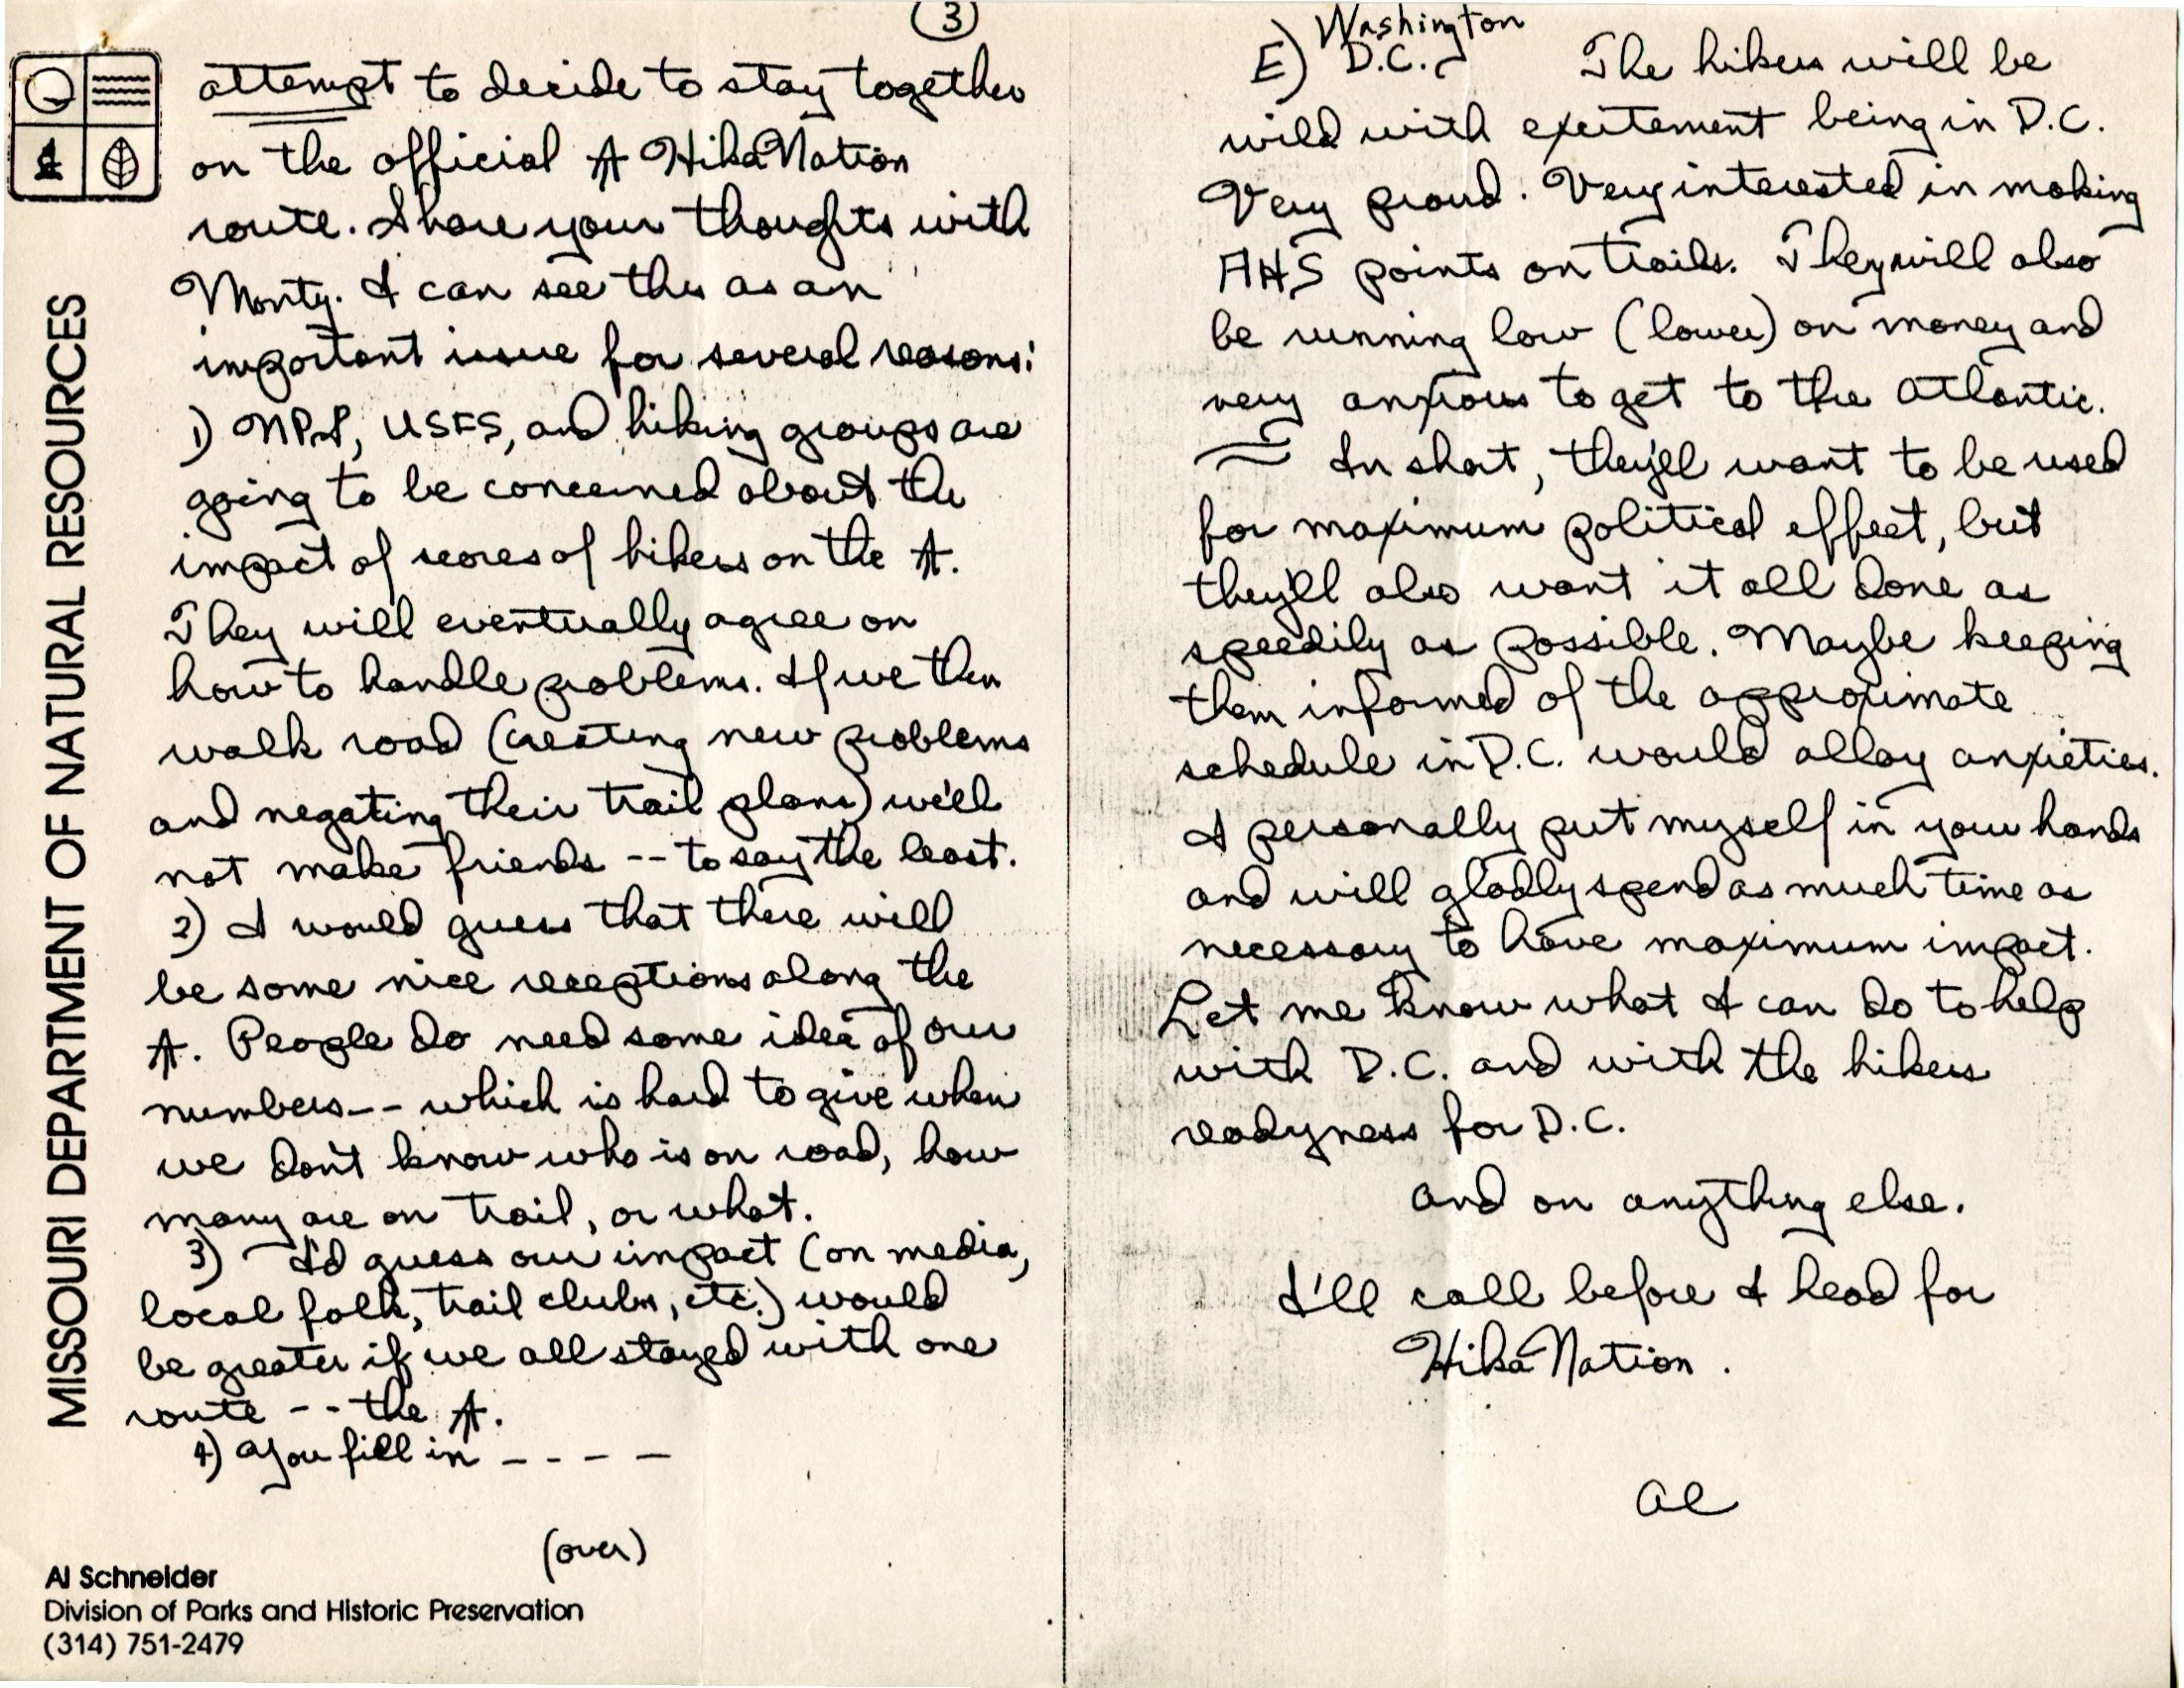 3
attempt to decide to stay together
on the official AT HikaNation
route. Share your thoughts with
Monty. I can see this as an
important issue for several reasons:
1) NPS, USFS, and hiking groups are
going to be concerned about the
impact of scores of hikers on the AT.
They will eventually agree on
how to handle problems. If we then
walk road (creating new problems
and negating their trail plans) we'll
not make friends -- to say the least.
2) I would guess that there will
be some nice receptions along the
AT. People do need some idea of our
numbers -- which is hard to give when
we don't know who is on road, how
many are on trail, or what.
3) I'd guess our impact (on media,
local folk, trail clubs, etc.) would
be greater if we all stayed with one
route -- the AT.
4) You fill in - - - -
(over)
MISSOURI DEPARTMENT OF NATURAL RESOURCES
Al Schneider
Division of Parks and Historic Preservation
(314) 751-2479
E) Washington
D.C. The hikers will be
wild with excitement being in D.C.
Very proud. Very interested in making
AHS points on trails. They will also
be running low (lower) on money and
very anxious to get to the Atlantic.
In short, they'll want to be used
for maximum political effect, but
they'll also want it all done as
speedily as possible. Maybe keeping
them informed of the approximate
schedule in D.C. would allay anxieties.
I personally put myself in your hands
and will gladly spend as much time as
necessary to have maximum impact.
Let me know what I can do to help
with D.C. and with the hikers
readyness for D.C.
and on anything else.
I'll call before I head for
HikaNation.
Al